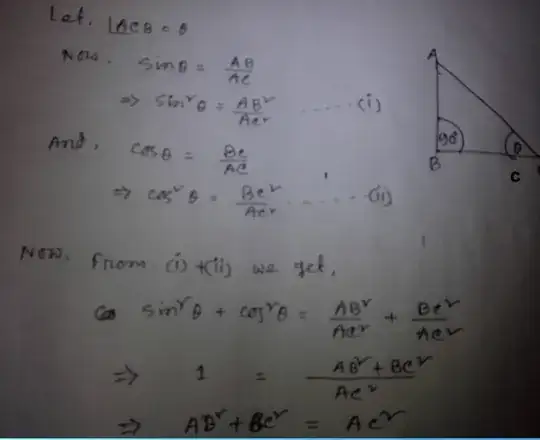 Let. ∠ACB = θ
Now. Sinθ = AB/AC
⇒ Sin²θ = AB²/AC² ...... (i)
And, Cosθ = BC/AC
⇒ Cos²θ = BC²/AC² ...... (ii)
Now. From (i)+(ii) we get,
Sin²θ + Cos²θ = AB²/AC² + BC²/AC²
⇒ 1 = AB² + BC²/AC²
⇒ AB² + BC² = AC²
A
90°
θ
B
C